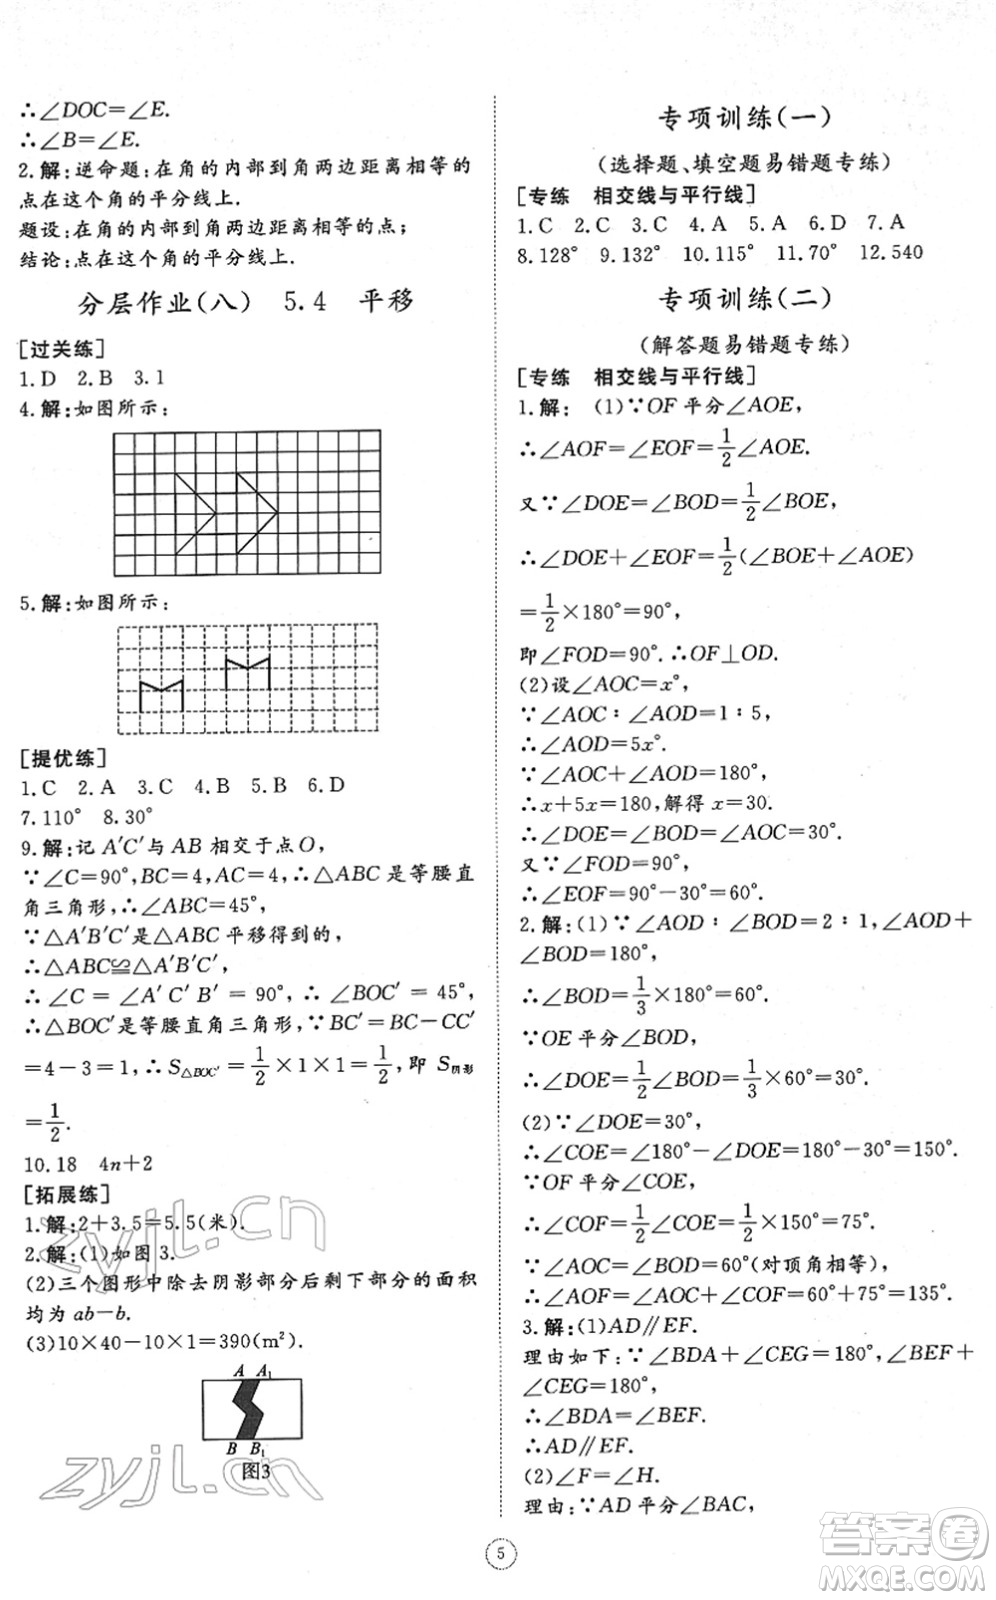 ∴∠DOC=∠E.
∴∠B=∠E.
2.解:逆命题:在角的内部到角两边距离相等的
点在这个角的平分线上.
题设:在角的内部到角两边距离相等的点;
结论:点在这个角的平分线上.
分层作业(八) 5.4 平移
[过关练]
1.D 2.B 3.1
4.解:如图所示:
5.解:如图所示:
[提优练]
1.C 2.A 3.C 4.B 5.B 6.D
7.110° 8.30°
9.解:记 A′C′与 AB 相交于点O,
∵∠C=90°,BC=4,AC=4,∴△ABC 是等腰直
角三角形,∴∠ABC=45°,
∵△A′B′C′是△ABC 平移得到的,
∴△ABC≌△A′B′C′,
∴∠C=∠A′C′B′=90°,∴∠BOC′=45°,
∴△BOC′是等腰直角三角形,∵BC′=BC-CC′
=4-3=1,∴S△BOC′=1/2×1×1=1/2,即 S阴影
=1/2.
10.18 4n+2
[拓展练]
1.解:2+3.5=5.5(米).
2.解:(1)如图 3.
(2)三个图形中除去阴影部分后剩下部分的面积
均为 ab-b.
(3)10×40-10×1=390(m²).
A A₁
B B₁
图3
专项训练(一)
(选择题、填空题易错题专练)
[专练 相交线与平行线]
1.C 2.C 3.C 4.A 5.A 6.D 7.A
8.128° 9.132° 10.115° 11.70° 12.540
专项训练(二)
(解答题易错题专练)
[专练 相交线与平行线]
1.解:(1)∵OF 平分∠AOE,
∴∠AOF=∠EOF=1/2∠AOE.
又∵∠DOE=∠BOD=1/2∠BOE,
∴∠DOE+∠EOF=1/2(∠BOE+∠AOE)
=1/2×180°=90°,
即∠FOD=90°.∴OF⊥OD.
(2)设∠AOC=x°,
∵∠AOC∶∠AOD=1∶5,
∴∠AOD=5x°.
∵∠AOC+∠AOD=180°,
∴x+5x=180,解得 x=30.
∴∠DOE=∠BOD=∠AOC=30°.
又∵∠FOD=90°,
∴∠EOF=90°-30°=60°.
2.解:(1)∵∠AOD∶∠BOD=2∶1,∠AOD+
∠BOD=180°,
∴∠BOD=1/3×180°=60°.
∵OE平分∠BOD,
∴∠DOE=1/2∠BOD=1/3×60°=30°.
(2)∵∠DOE=30°,
∴∠COE=∠180°-∠DOE=180°-30°=150°.
∵OF 平分∠COE,
∴∠COF=1/2∠COE=1/2×150°=75°.
∵∠AOC=∠BOD=60°(对顶角相等),
∴∠AOF=∠AOC+∠COF=60°+75°=135°.
3.解:(1)AD∥EF.
理由如下:∵∠BDA+∠CEG=180°,∠BEF+
∠CEG=180°,
∴∠BDA=∠BEF.
∴AD∥EF.
(2)∠F=∠H.
理由:∵AD 平分∠BAC,
5
zyjl.cn
zyjl.cn
答案圈
MXQE.COM